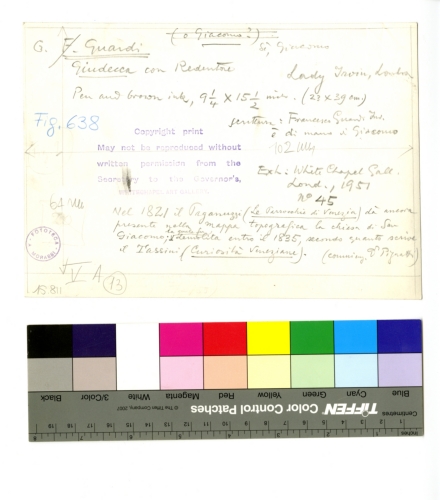 (o Giacomo?)
G. F. Guardi
sì, Giacomo
Giudecca con Redentore
Lady Irwin, London
Pen and brown ink, 9 1/4 × 15 1/2 ins. (23 × 39 cm)
Fig. 638
scrittura: Francesco Guardi
è di mano di Giacomo
Copyright print
May not be reproduced without
written permission from the
Secretary to the Governor's,
Exh: White Chapel Gall.
Lond., 1951
n° 45
Nel 1821 il Paganuzzi (Le Parrocchie di Venezia) dà ancora
presente nella mappa topografica la chiesa di San
Giacomo; demolita entro il 1835, secondo quanto scrive
il Tassini (Curiosità Veneziane).
V A 13
FOTOTECA
TIFFEN Color Control Patches
© The Tiffen Company, 2007
Blue Cyan Green Yellow Red Magenta White 3/Color Black
Centimetres
Inches